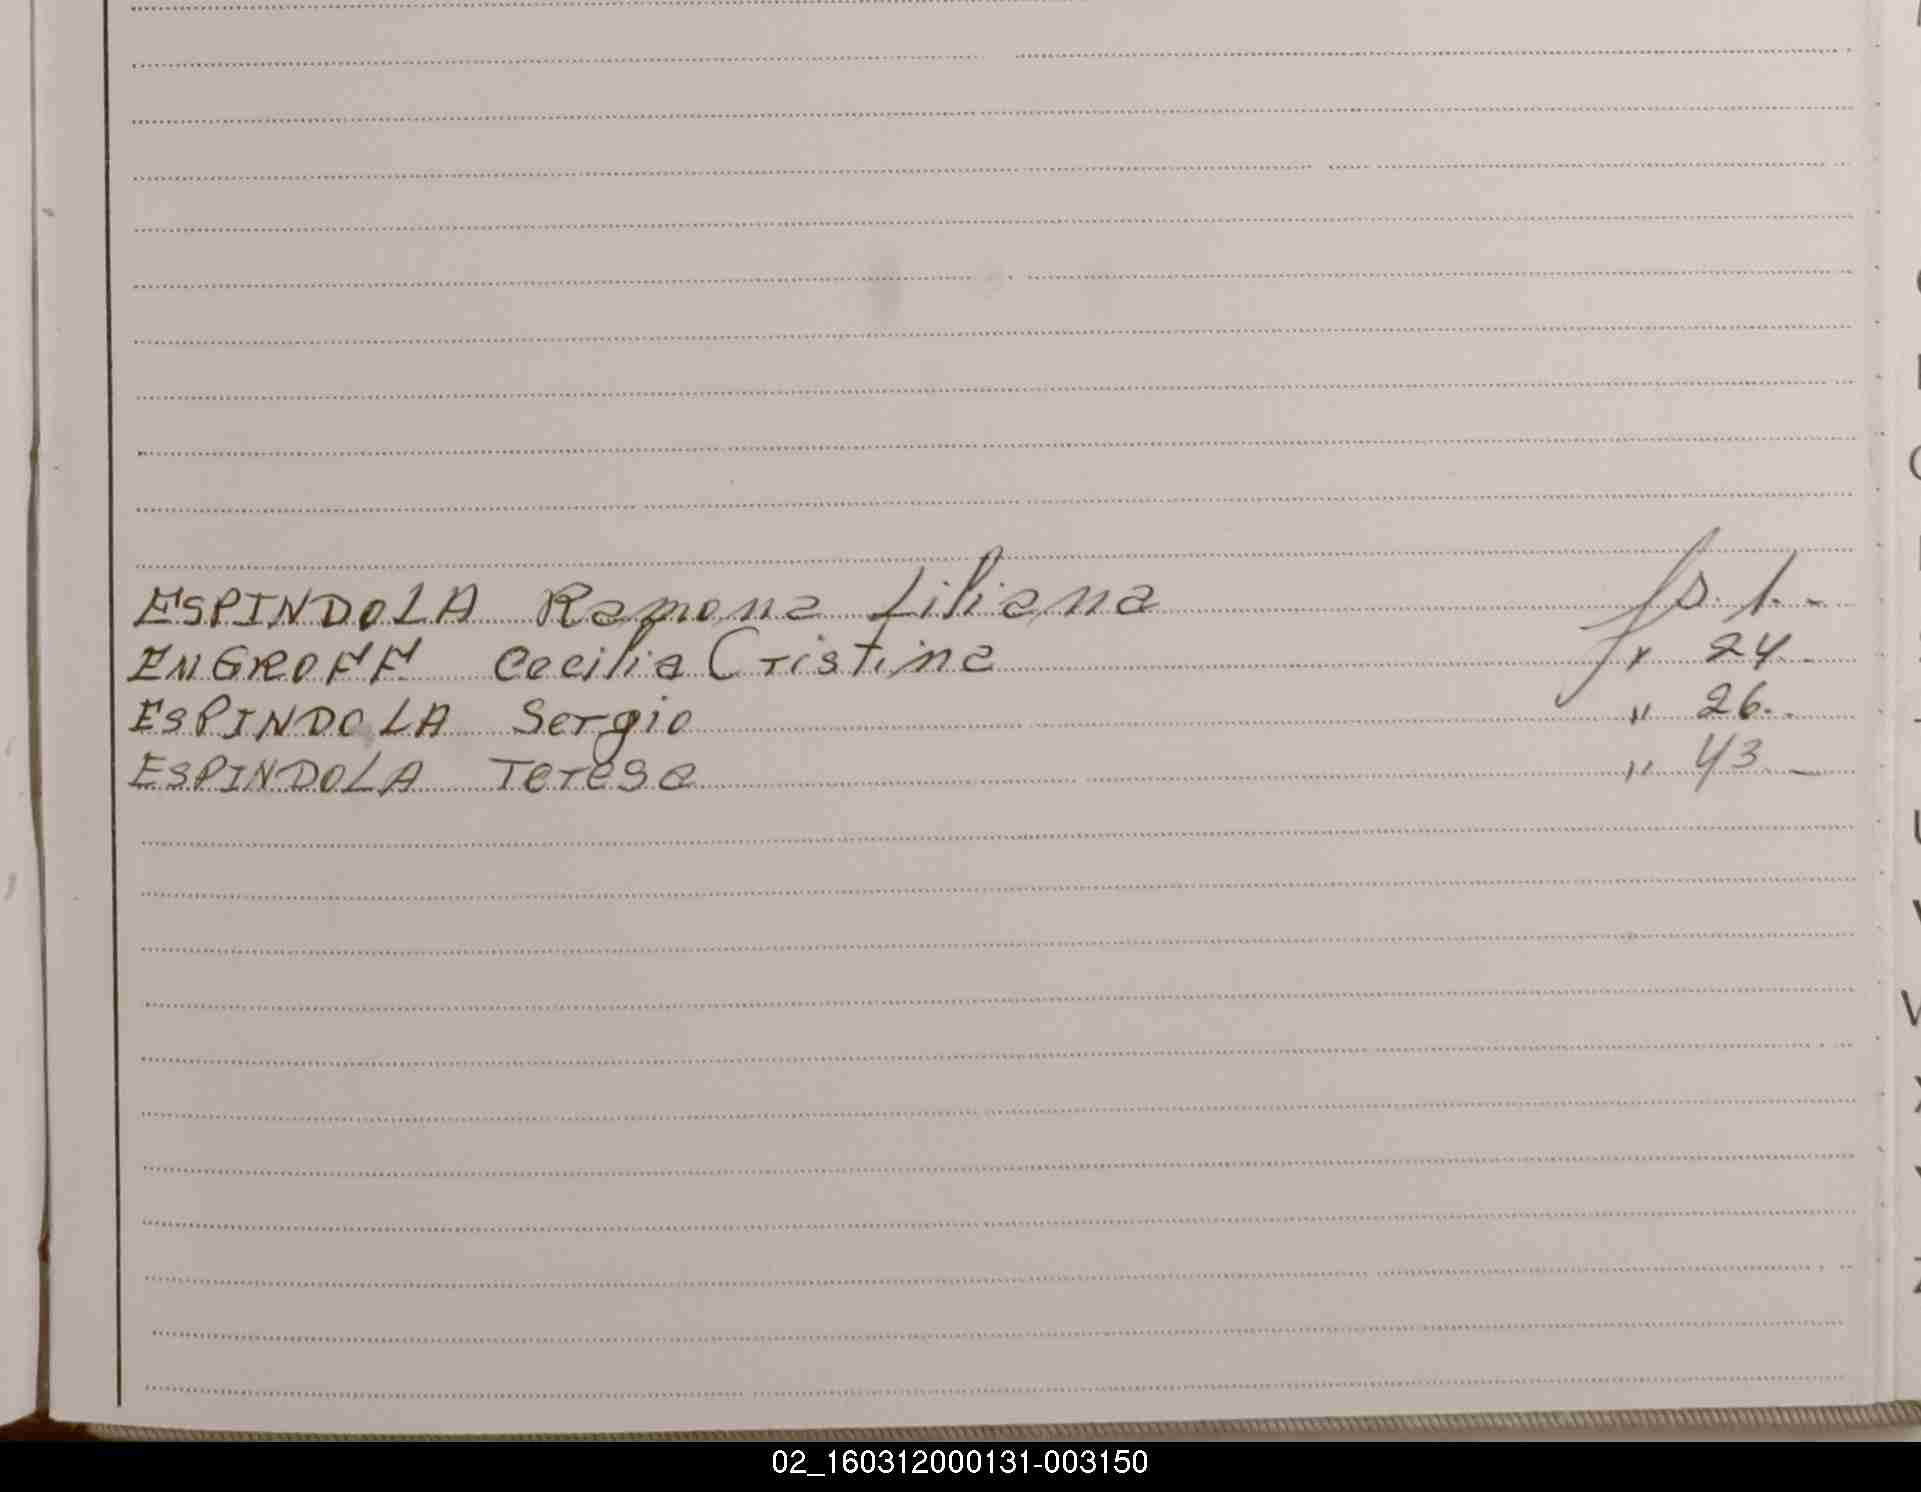 ESPINDOLA Ramona Liliana fs. 1.-
ENGROFF Cecilia Cristina " 24.
ESPINDOLA Sergio " 26.-
ESPINDOLA Teresa " 43_
02_160312000131-003150